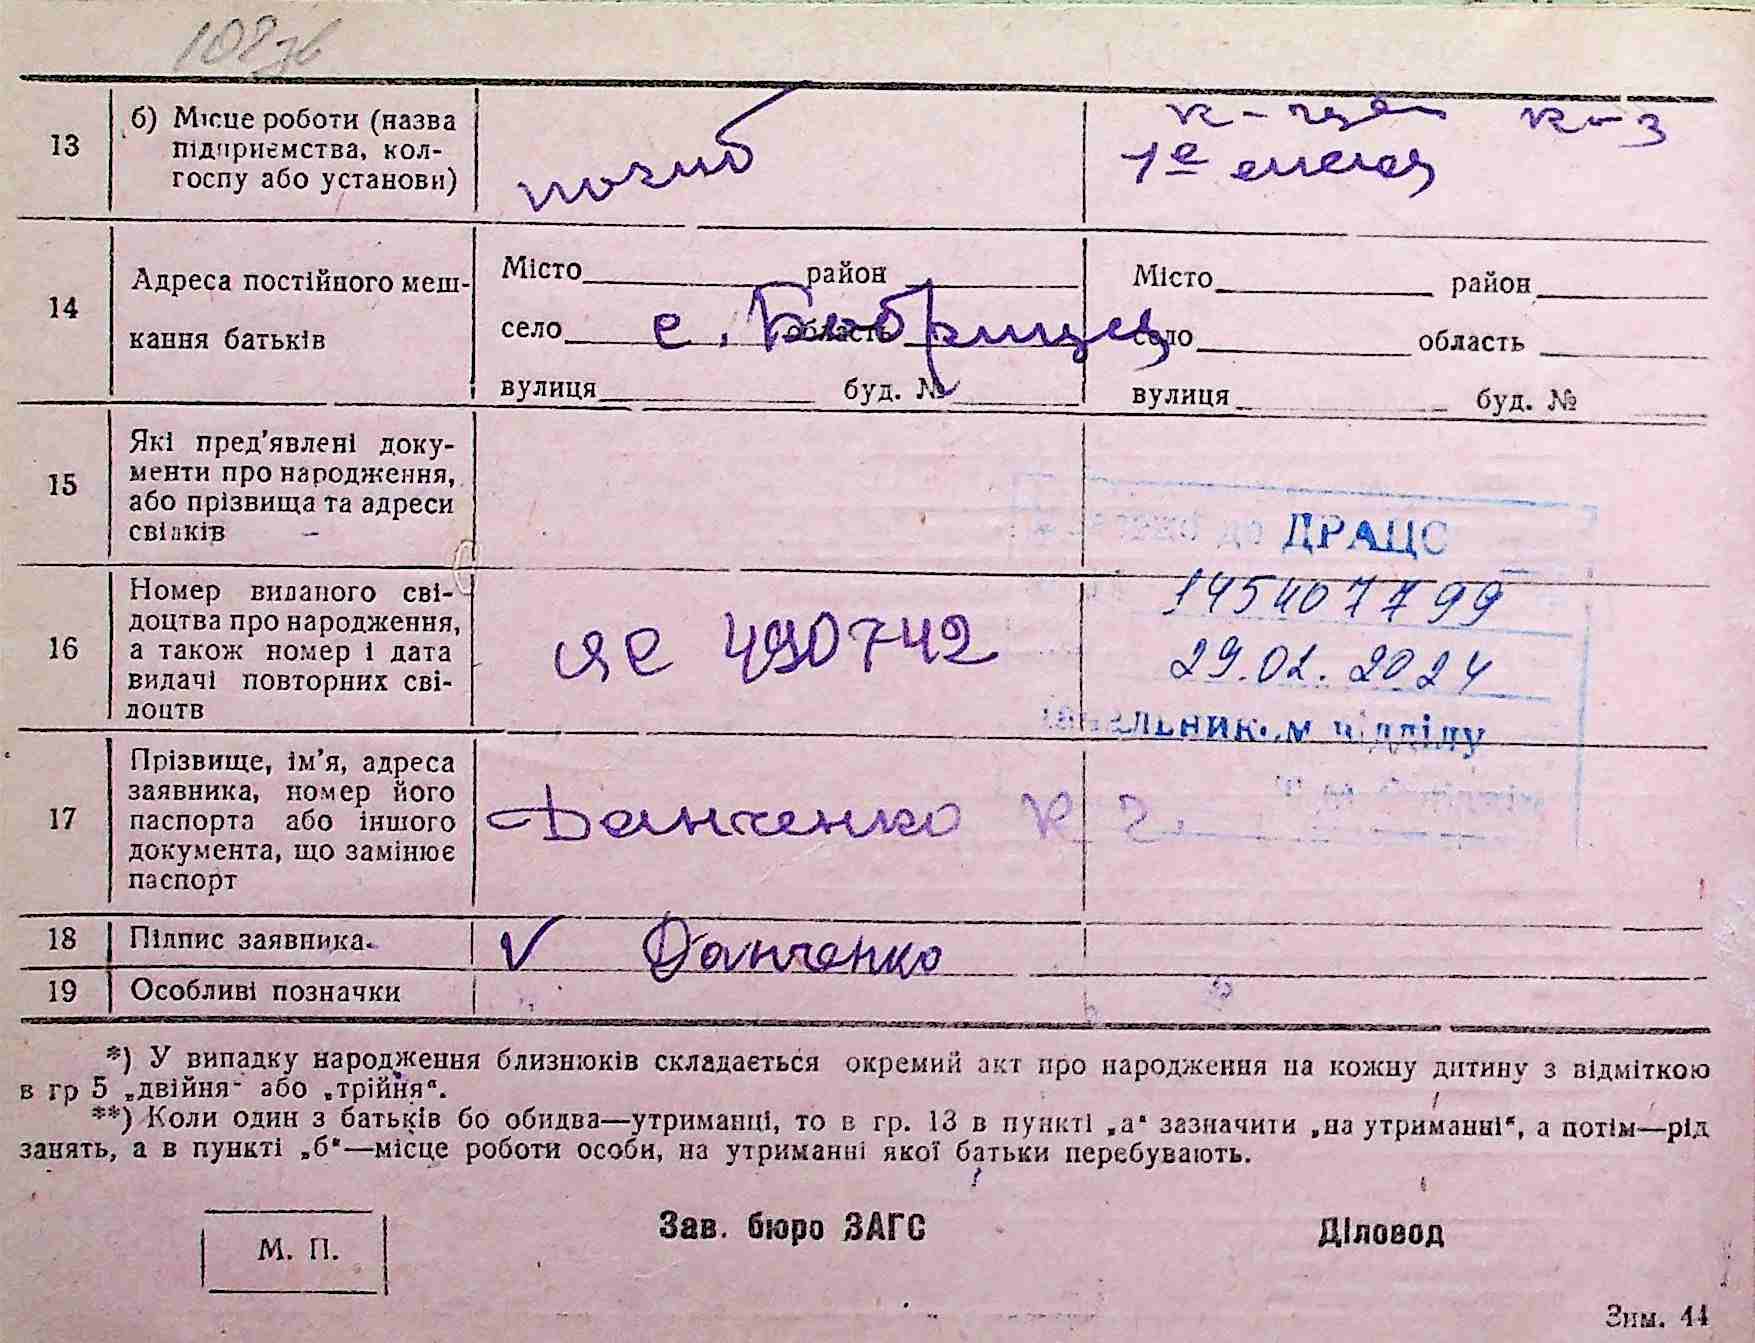 108зв
13
б) Місце роботи (назва
підприємства, кол-
госпу або установи)
к-з
1е
14
Адреса постійного меш-
кання батьків
Місто район
село область
вулиця буд. №
с. Бобриця
Місто район
село область
вулиця буд. №
15
Які пред’явлені доку-
менти про народження,
або прізвища та адреси
свідків
ДРАЦС
16
Номер виданого сві-
доцтва про народження,
а також номер і дата
видачі повторних сві-
доцтв
ЯЄ 490742
145407799
29.02.2024
начальником відділу
17
Прізвище, ім’я, адреса
заявника, номер його
паспорта або іншого
документа, що замінює
паспорт
Данченко К Г.
18
Підпис заявника
V Данченко
19
Особливі позначки
*) У випадку народження близнюків складається окремий акт про народження на кожну дитину з відміткою
в гр 5 „двійня“ або „трійня“.
**) Коли один з батьків бо обидва—утриманці, то в гр. 13 в пункті „а“ зазначити „на утриманні“, а потім—рід
занять, а в пункті „б“—місце роботи особи, на утриманні якої батьки перебувають.
М. П.
Зав. бюро ЗАГС
Діловод
Зим. 44